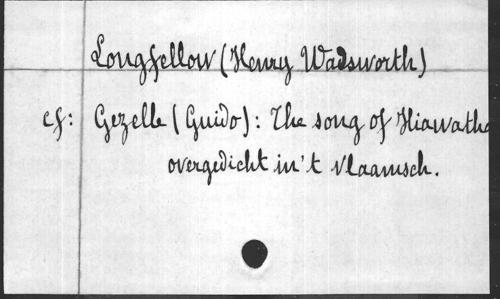 Longfellow (Henry Wadsworth)
cf: Gezelle (Guido): The song of Hiawatha
overgedicht in't vlaamsch.